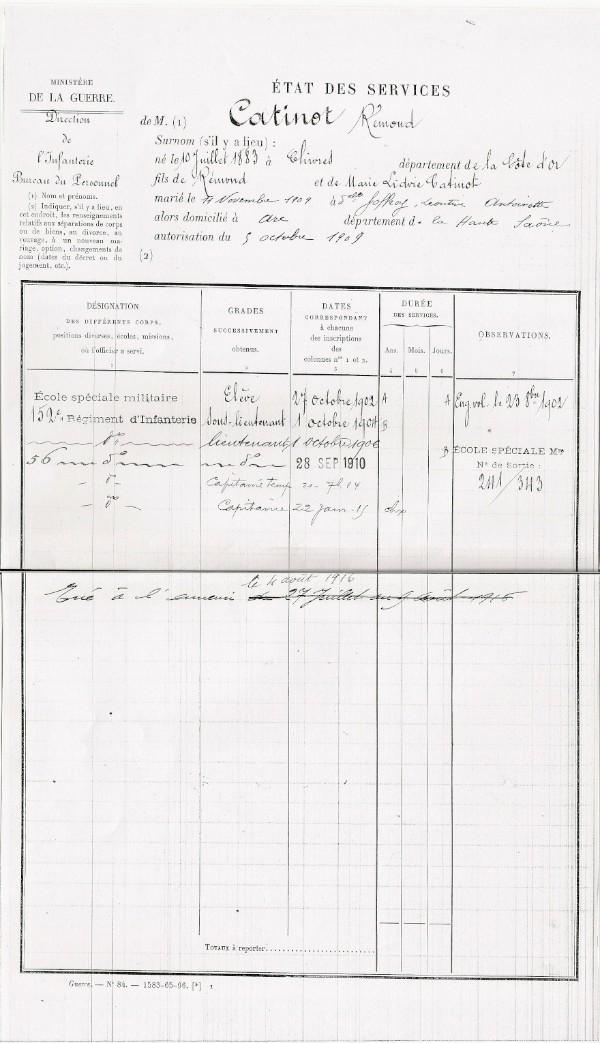 MINISTÈRE
DE LA GUERRE.
Direction
de
l'Infanterie
Bureau du Personnel
(1) Nom et prénoms.
(2) Indiquer, s'il y a lieu, en
cet endroit, les renseignements
relatifs aux séparations de corps
ou de biens, au divorce, au
veuvage, à un nouveau ma-
riage, option, changements de
nom (dates du décret ou du
jugement, etc.).
ÉTAT DES SERVICES
de M. (1) Catinot Rémond
Surnom (s'il y a lieu) :
né le 10 Juillet 1883 à département de la Côte d'or
fils de Rémond et de Marie Catinot
marié le 4 Novembre 1909 à Delle Joffroy, Antoinette
alors domicilié à Arc département de la Haute Saône
autorisation du 5 octobre 1909
(2)
DÉSIGNATION
DES DIFFÉRENTS CORPS,
positions diverses, écoles, missions,
où l'officier a servi.
1
GRADES
SUCCESSIVEMENT
obtenus.
2
DATES
CORRESPONDANT
à chacune
des inscriptions
des
colonnes nos 1 et 2.
3
DURÉE
DES SERVICES.
Ans. Mois. Jours.
4 5 6
OBSERVATIONS.
7
École spéciale militaire Elève 27 octobre 1902 A A Eng. vol. le 23 8bre 1902
152e Régiment d'Infanterie sous-lieutenant 1 octobre 1904 B
do lieutenant 1 octobre 1906 B ÉCOLE SPÉCIALE Mre
56 do do 28 SEP 1910 No de Sortie :
do Capitaine temp 241/343
do Capitaine 22 janv. 15
le 4 août 1916
Tué à l'ennemi du 27 Juillet au 9 Août 1916
TOTAUX à reporter
Guerre. — No 84. — 1583-65-96. [*] 1